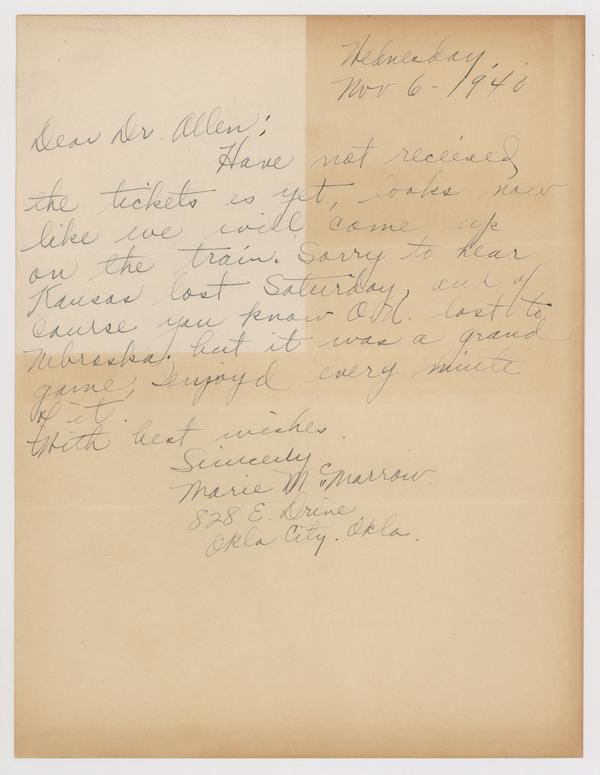 Wednesday,
Nov 6 - 1940
Dear Dr. Allen;
Have not recieved
the tickets as yet, looks now
like we will come up
on the train. Sorry to hear
Kansas lost Saturday, and of
course you know O.U. lost to
Nebraska. but it was a grand
game, enjoyd every minute
of it.
With best wishes.
Sincerly
Marie McMarrow.
828 E. Drive
Okla City. Okla.